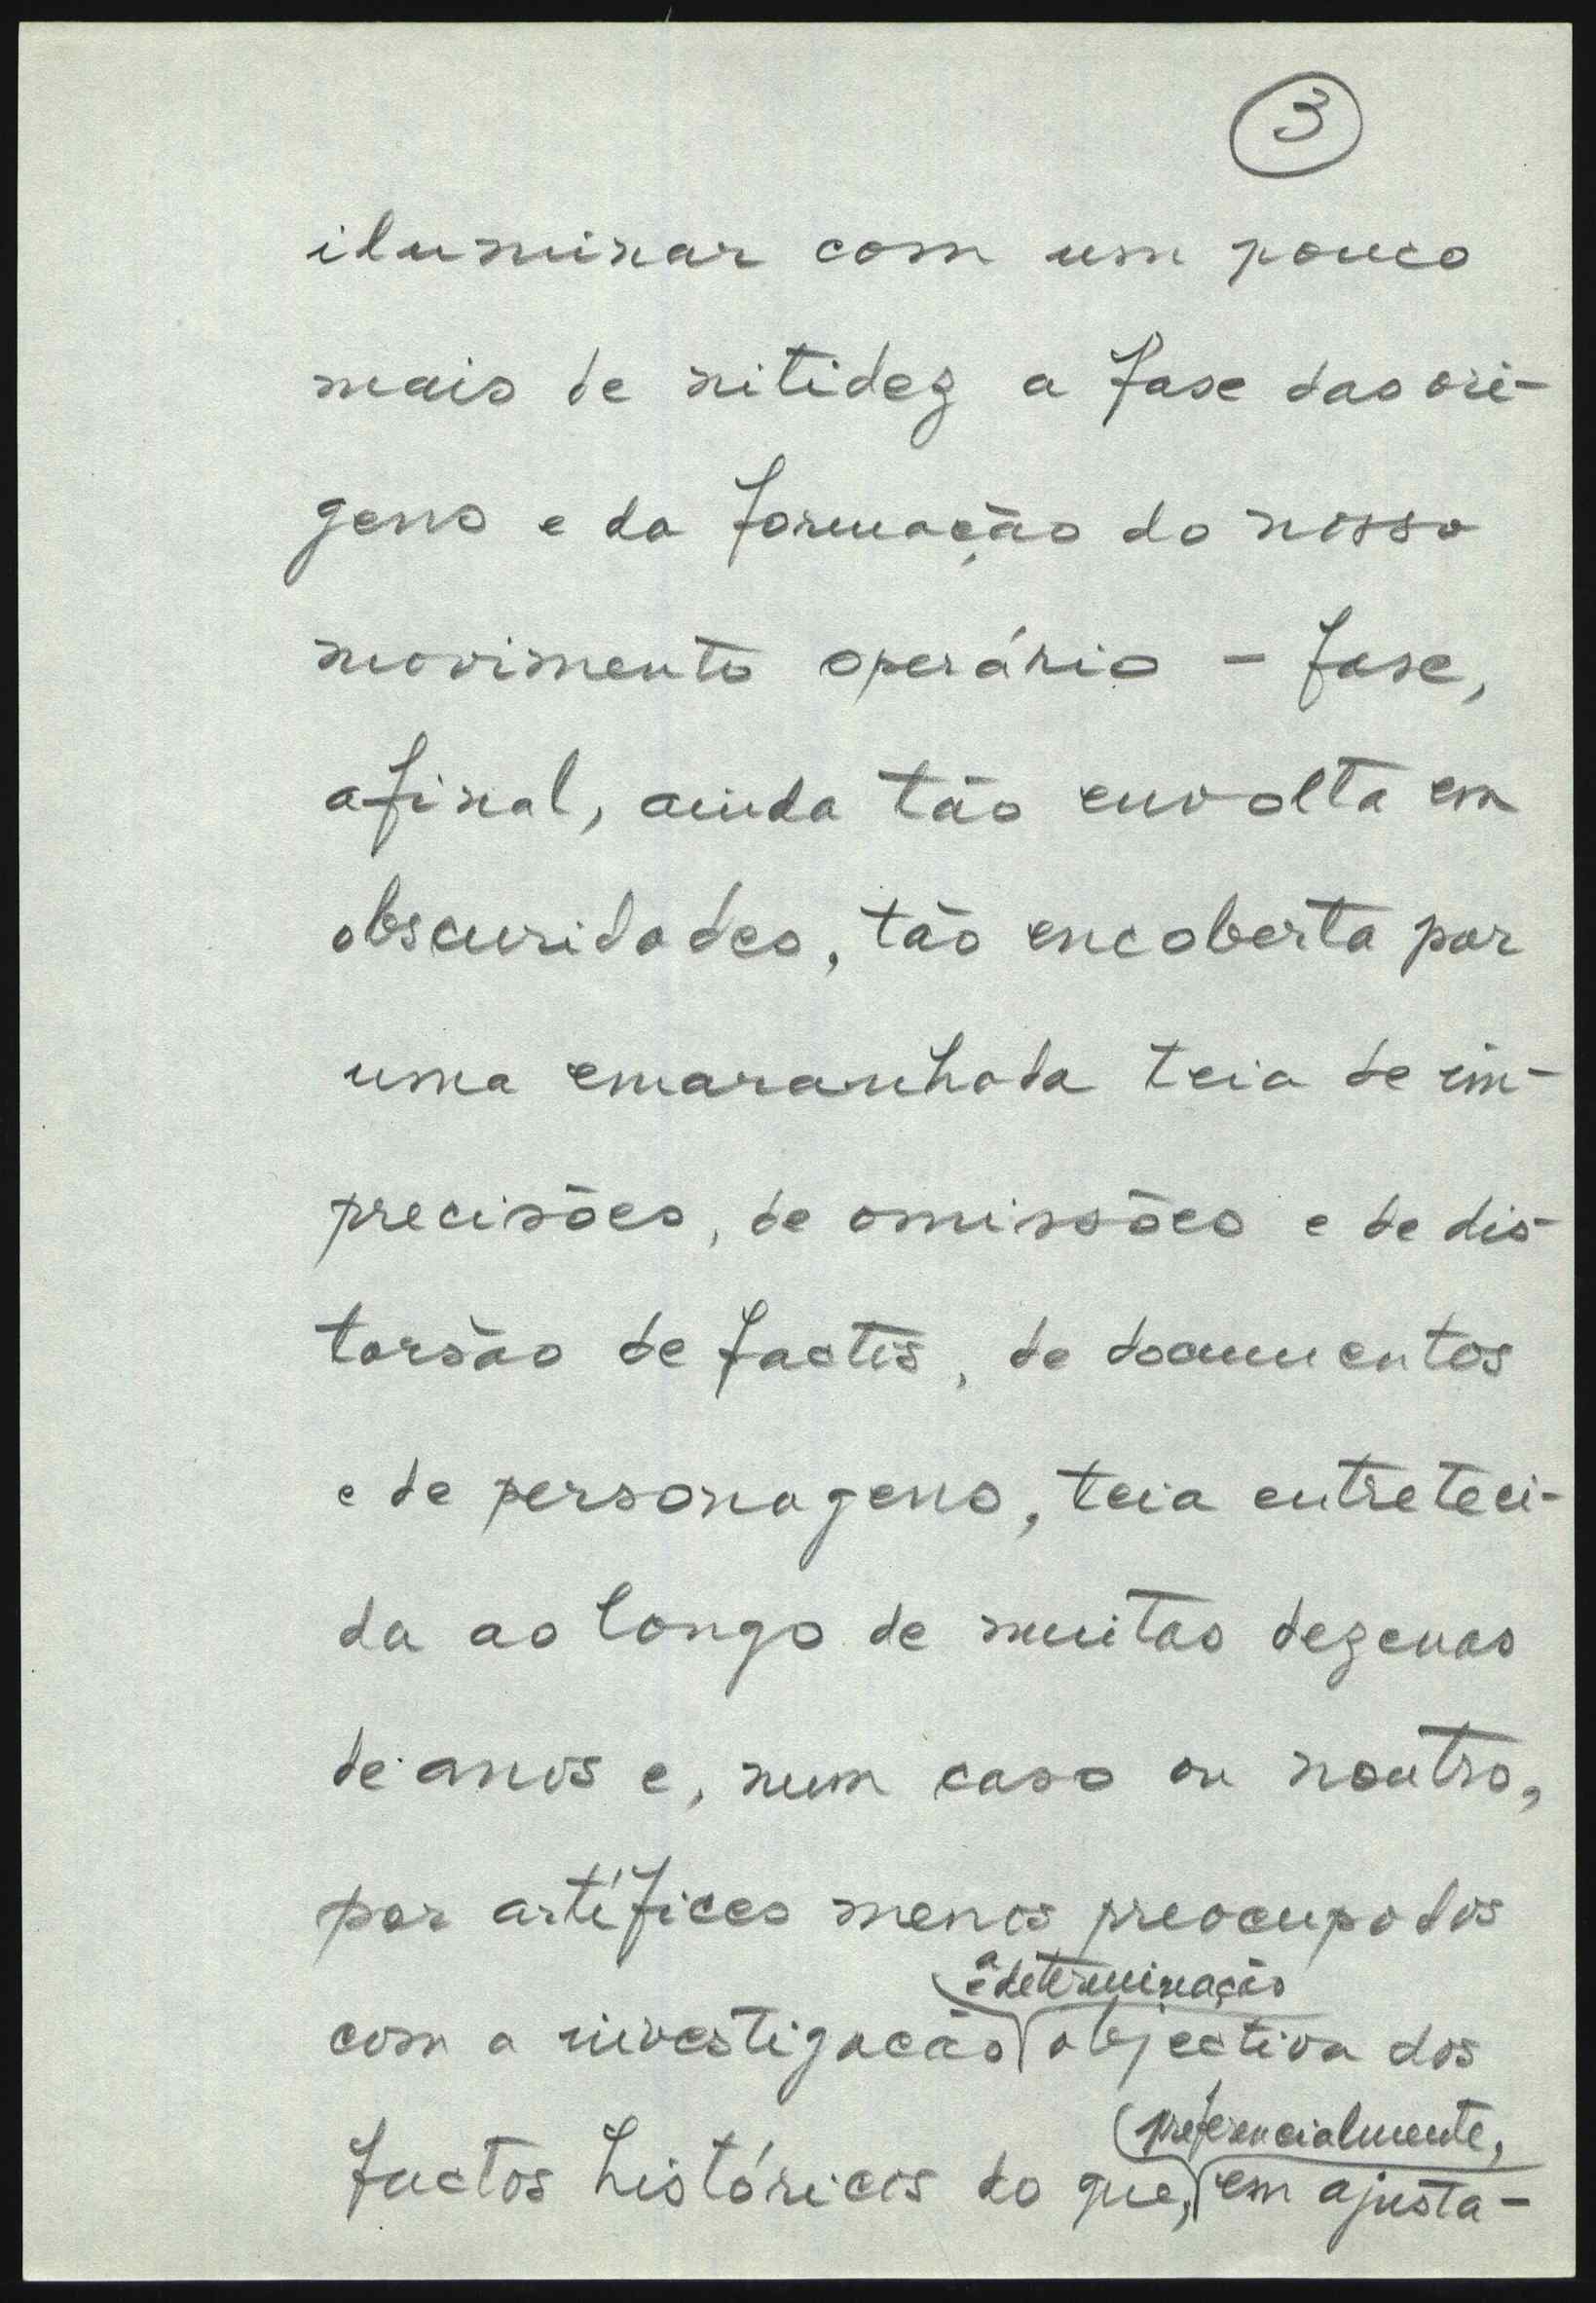 3
iluminar com um pouco
mais de nitidez a fase das ori-
gens e da formação do nosso
movimento operário - fase,
afinal, ainda tão envolta em
obscuridades, tão encoberta por
uma emaranhada teia de im-
precisões, de omissões e de dis-
torsão de factos, de documentos
e de personagens, teia entreteci-
da ao longo de muitas dezenas
de anos e, num caso ou noutro,
por artífices menos preocupados
e a determinação
com a investigação objectiva dos
preferencialmente,
factos históricos do que, em ajusta-